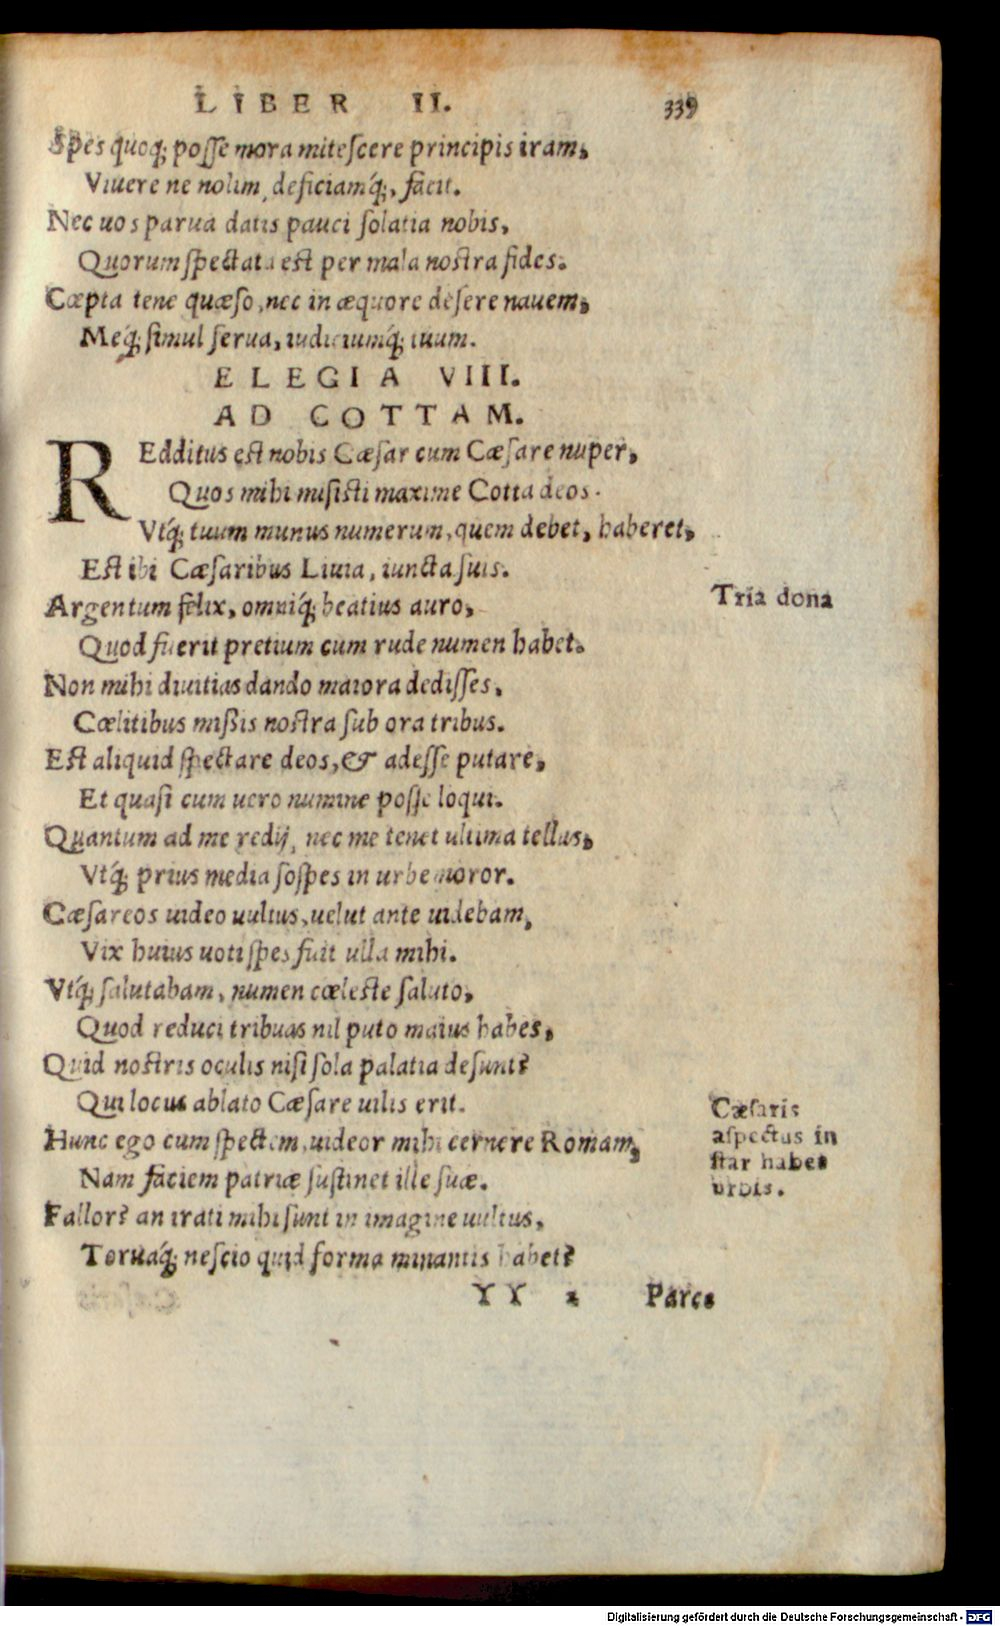 LIBER II. 339
Spes quoq; posse mora mitescere principis iram,
Viuere ne nolim, deficiamq́;, facit.
Nec uos parua datis pauci solatia nobis,
Quorum spectata est per mala nostra fides.
Cœpta tene quæso, nec in æquore desere nauem,
Meq́; simul serua, iudiciumq́; tuum.
ELEGIA VIII.
AD COTTAM.
REdditus est nobis Cæsar cum Cæsare nuper,
Quos mihi misisti maxime Cotta deos.
Vtq́; tuum munus numerum, quem debet, haberet,
Est ibi Cæsaribus Liuia, iuncta suis.
Argentum felix, omniq́; beatius auro,
Tria dona
Quod fuerit pretium cum rude numen habet.
Non mihi diuitias dando maiora dedisses,
Cœlitibus mißis nostra sub ora tribus.
Est aliquid spectare deos, & adesse putare,
Et quasi cum uero numine posse loqui.
Quantum ad me redij, nec me tenet ultima tellus,
Vtq́; prius media sospes in urbe moror.
Cæsareos uideo uultus, uelut ante uidebam,
Vix huius uoti spes fuit ulla mihi.
Vtq́; salutabam, numen cœleste saluto,
Quod reduci tribuas nil puto maius habes,
Quid nostris oculis nisi sola palatia desunt?
Qui locus ablato Cæsare uilis erit.
Hunc ego cum spectem, uideor mihi cernere Romam,
Nam faciem patriæ sustinet ille suæ.
Cæsaris
aspectus in
star habet
urbis.
Fallor? an irati mihi sunt in imagine uultus,
Toruaq́; nescio quid forma minantis habet?
YY 2 Parce
Digitalisierung gefördert durch die Deutsche Forschungsgemeinschaft - DFG